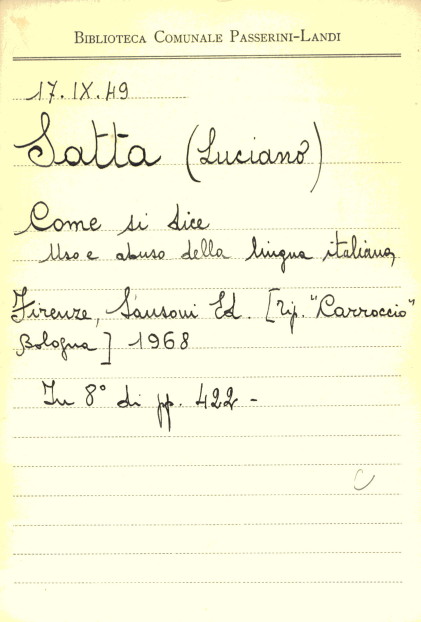 BIBLIOTECA COMUNALE PASSERINI-LANDI
17.IX.49
Satta (Luciano)
Come si dice
Uso e abuso della lingua italiana,
Firenze, Sansoni Ed. [Tip. "Carroccio"
Bologna] 1968
In 8° di pp. 422 -
C